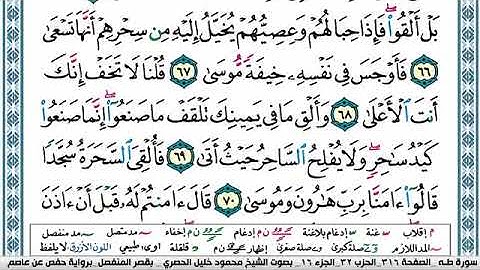 بَلْ أَلْقُوا۟ ۖ فَإِذَا حِبَالُهُمْ وَعِصِيُّهُمْ يُخَيَّلُ إِلَيْهِ مِن سِحْرِهِمْ أَنَّهَا تَسْعَىٰ
٦٦ فَأَوْجَسَ فِى نَفْسِهِۦ خِيفَةً مُّوسَىٰ ٦٧ قُلْنَا لَا تَخَفْ إِنَّكَ
أَنتَ ٱلْأَعْلَىٰ ٦٨ وَأَلْقِ مَا فِى يَمِينِكَ تَلْقَفْ مَا صَنَعُوٓا۟ ۖ إِنَّمَا صَنَعُوا۟
كَيْدُ سَـٰحِرٍ ۖ وَلَا يُفْلِحُ ٱلسَّاحِرُ حَيْثُ أَتَىٰ ٦٩ فَأُلْقِىَ ٱلسَّحَرَةُ سُجَّدًا
قَالُوٓا۟ ءَامَنَّا بِرَبِّ هَـٰرُونَ وَمُوسَىٰ ٧٠ قَالَ ءَامَنتُمْ لَهُۥ قَبْلَ أَنْ ءَاذَنَ
م إقلاب غنة إدغام بلاغنة ن م إدغام ن م إخفاء مد متصل مد منفصل
المد اللازم صلة كبرى صلة صغرى إظهار ن م قلقلة اوى، طبيعي اللون الأزرق لا يلفظ
سورة طـه _ الصفحة ٣١٦ الحزب ٣٢ الجزء ١٦_ بصوت الشيخ محمود خليل الحصري _ بقصر المنفصل_ برواية حفص عن عاصم